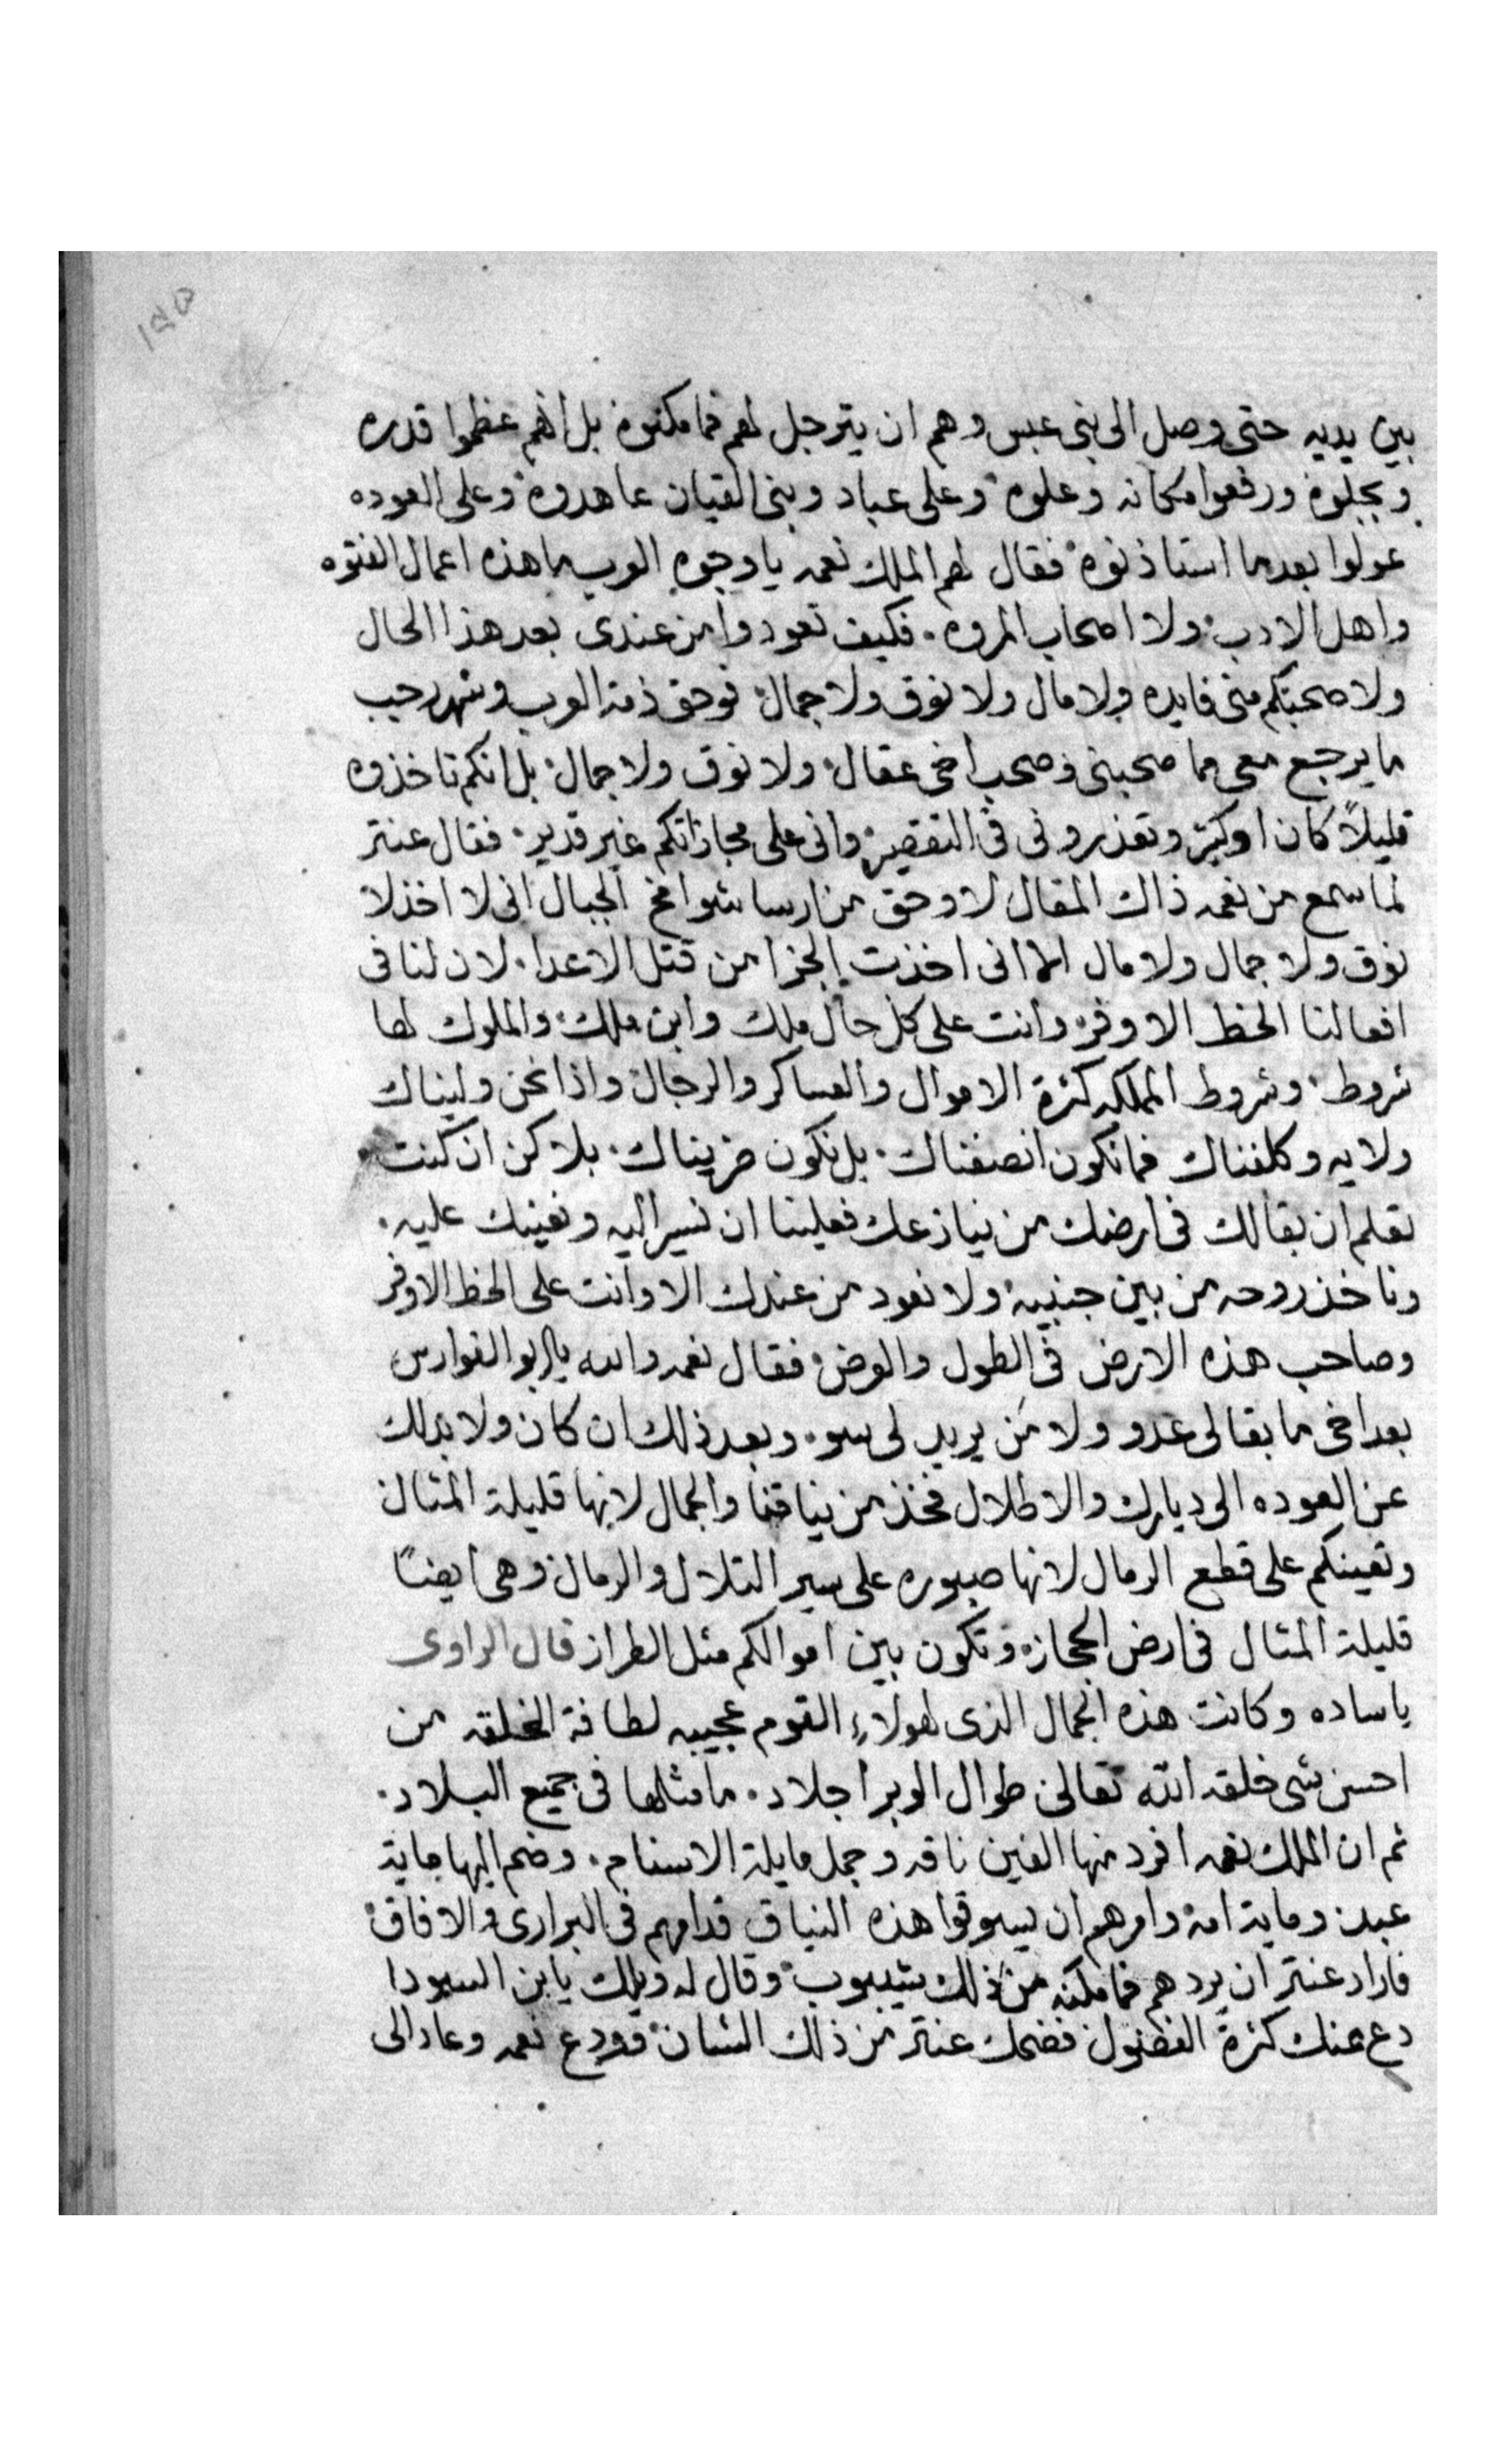 ١٨٥
بين يديه حتى وصل الى بنى عبس وهم ان يترجل لهم فما مكنوه بل انهم عظموا قدره
وبجلوه ورفعوا مكانه وعلوه وعلى عباد وبنى القيان عاهدوه وعلى العوده
عولوا بعدما استاذنوه فقال لهم الملك نعمه يا وجوه العرب ما هذه اعمال الفتوه
واهل الادب ولا اصحاب المروه. فكيف تعودوا من عندى بعد هذا الحال
ولا صحبتكم منى فايده ولا مال ولا نوق ولا جمال فوحق ذمة العرب وشهر رجب
ما يرجع معى مما صحبنى وصحب اخى عقال ولا نوق ولا جمال بل انكم تاخذوه
قليلاً كان او كثير وتعذرونى فى التقصير وانى على مجازاتكم غير قدير. فقال عنتر
لما سمع من نعمه ذاك المقال لا وحق من ارسا شوامخ الجبال انى لا اخذ لا
نوق ولا جمال ولا مال الا انى اخذت الجزا من قتل الاعدا. لان لنا فى
افعالنا الحظ الاوفر وانت على كل حال ملك وابن ملك والملوك لها
شروط وشروط المملكه كثرة الاموال والعساكر والرجال واذا نحن وليناك
ولايه وكلفناك فما نكون انصفناك. بل نكون ضريناك. بلاكن ان كنت
تعلم ان بقا لك فى ارضك من ينازعك فعلينا ان نسير اليه ونعينك عليه.
وناخذ روحه من بين جنبيه ولا نعود من عندك الا وانت على الحظ الاوفر
وصاحب هذه الارض فى الطول والعرض فقال نعمه والله يا ابو الفوارس
بعد اخى ما بقا لى عدو ولا من يريد لى سو. وبعد ذلك ان كان ولا بد لك
عن العوده الى ديارك والاطلال فخذ من نياقنا والجمال لانها قليلة المثال
وتعينكم على قطع الرمال لانها صبوره على سير التلال والرمال وهى ايضاً
قليلة المثال فى ارض الحجاز وتكون بين اموالكم مثل الطراز قال الراوى
ياساده وكانت هذه الجمال الذى لهولاء القوم عجيبه لطافة الخلقه من
احسن شى خلقه الله تعالى طوال الوبر اجلاد. ما مثلها فى جميع البلاد.
ثم ان الملك نعمه افرد منها الفين ناقه وجمل مايلة الاسنام. وضم اليها ماية
عبد وماية امه وامرهم ان يسوقوا هذه النياق قدامهم فى البرارى والافاق
فاراد عنتر ان يردهم فما مكنه من ذلك شيبوب وقال له ويلك يا بن السودا
دع عنك كثرة الفضول فضحك عنتر من ذلك الشان فودع نعمه وعاد الى